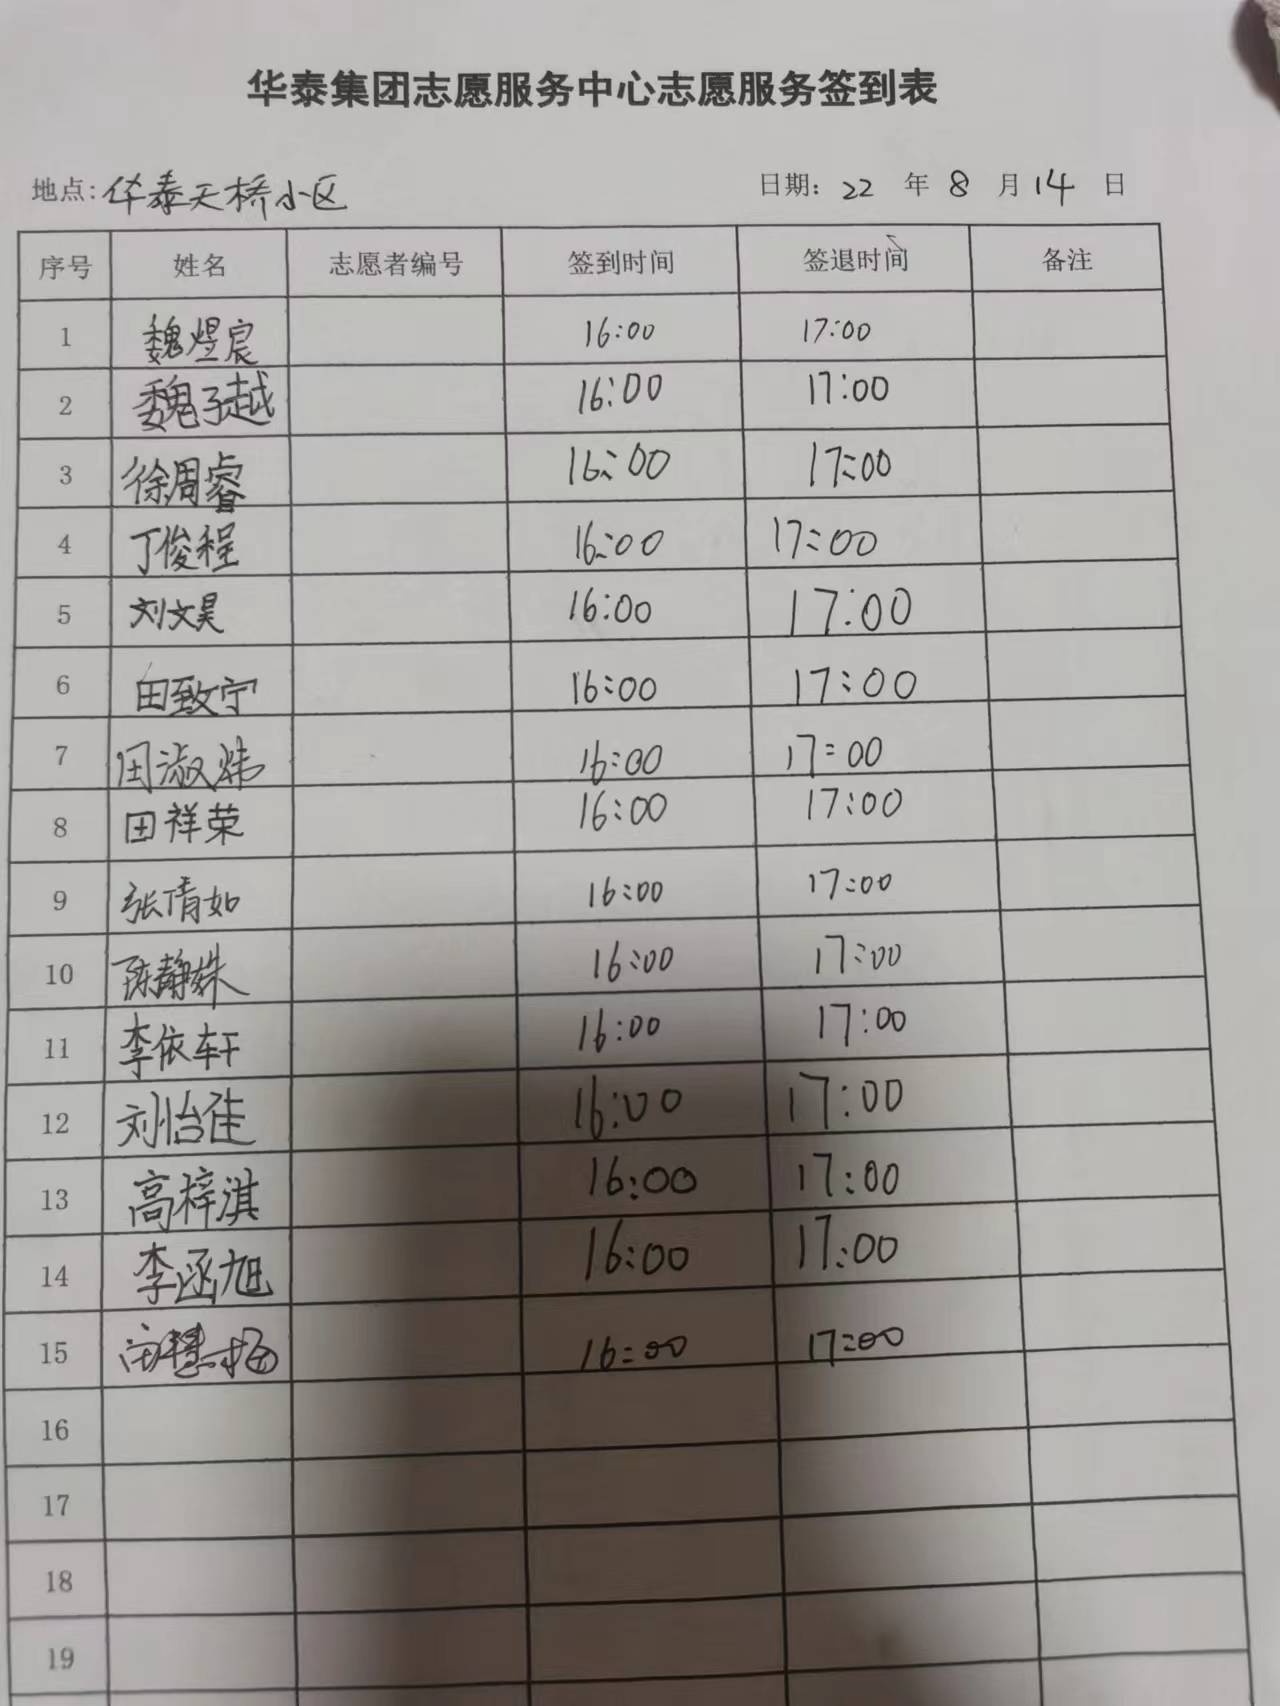 华泰集团志愿服务中心志愿服务签到表
地点:华泰天桥小区 日期: 22 年 8 月 14 日
序号 姓名 志愿者编号 签到时间 签退时间 备注
1 魏煜宸 16:00 17:00
2 魏子越 16:00 17:00
3 徐周睿 16:00 17:00
4 丁俊程 16:00 17:00
5 刘文昊 16:00 17:00
6 田致宁 16:00 17:00
7 田淑炜 16:00 17:00
8 田祥荣 16:00 17:00
9 张倩如 16:00 17:00
10 陈静姝 16:00 17:00
11 李依轩 16:00 17:00
12 刘怡佳 16:00 17:00
13 高梓淇 16:00 17:00
14 李函旭 16:00 17:00
15 16:00 17:00
16
17
18
19